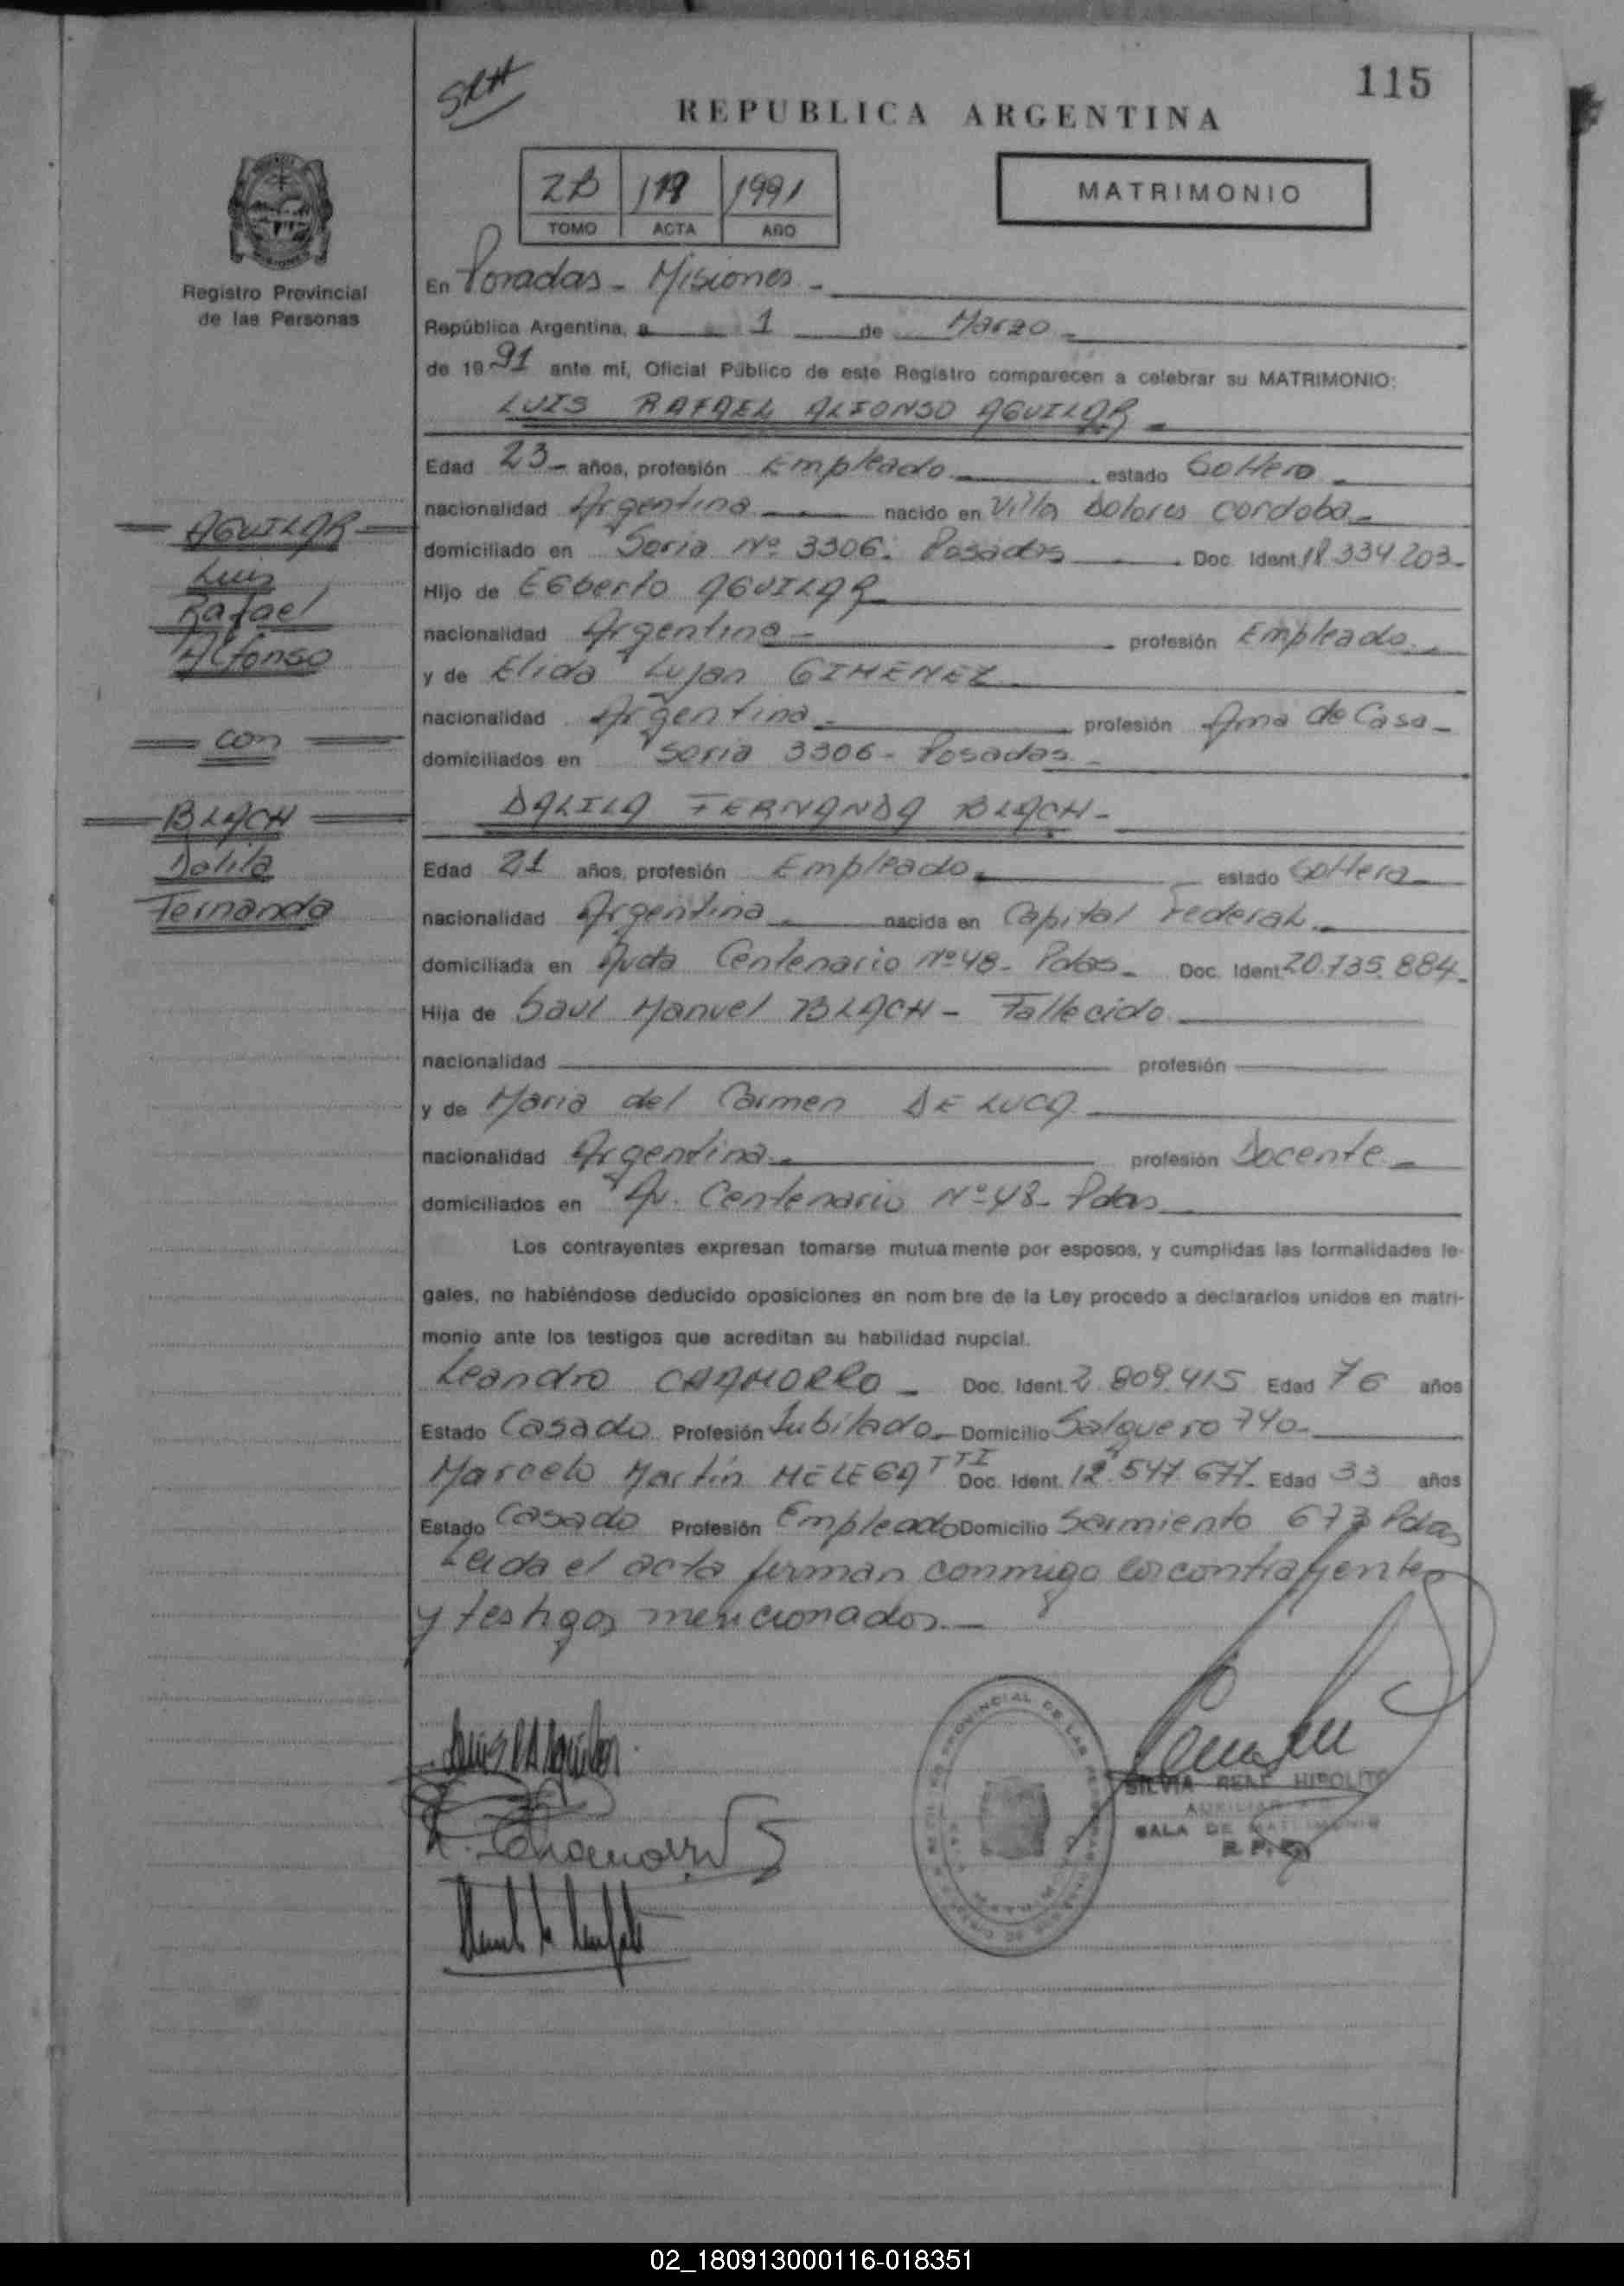 115
SRH
REPUBLICA ARGENTINA
2B 1991
TOMO ACTA AÑO
MATRIMONIO
Registro Provincial
de las Personas
En Posadas - Misiones -
República Argentina, a 1 de Marzo -
de 1991 ante mí, Oficial Público de este Registro comparecen a celebrar su MATRIMONIO:
LUIS RAFAEL ALFONSO AGUILAR -
Edad 23 - años, profesión Empleado estado Soltero -
nacionalidad Argentina nacido en Villa Dolores cordoba -
domiciliado en Soria Nº 3306. Posadas Doc. Ident. 18.334.203 -
Hijo de EGberto AGUILAR
nacionalidad Argentina - profesión Empleado -
y de Elida Lujan GIMENEZ
nacionalidad Argentina - profesión Ama de Casa -
domiciliados en Soria 3306 - Posadas -
DALILA FERNANDA BLACH -
Edad 21 años, profesión Empleado estado Soltera
nacionalidad Argentina nacida en Capital Federal -
domiciliada en Avda Centenario Nº 48 - Pdas - Doc. Ident. 20.735.884 -
Hija de Saul Manuel BLACH - Fallecido
nacionalidad profesión
y de Maria del Carmen DE LUCA
nacionalidad Argentina profesión Docente -
domiciliados en Av. Centenario Nº 48 - Pdas
Los contrayentes expresan tomarse mutuamente por esposos, y cumplidas las formalidades le-
gales, no habiéndose deducido oposiciones en nom bre de la Ley procedo a declararlos unidos en matri-
monio ante los testigos que acreditan su habilidad nupcial.
Leandro CHAMORRO - Doc. Ident. 2.809.415 Edad 76 años
Estado Casado Profesión Jubilado - Domicilio Salguero 740 -
Marcelo Martín MELEGATTI Doc. Ident. 12.547.677 - Edad 33 años
Estado Casado Profesión Empleado Domicilio Sarmiento 673 Pdas
Leida el acta firman conmigo los contrayentes
y testigos mencionados. -
AGUILAR
Luis
Rafael
Alfonso
con
BLACH
Dalila
Fernanda
Luis R A Aguilar
L. Chamorro
SILVIA RENE HIPOLITO
AUXILIAR
SALA DE MATRIMONIO
R. P. P.
PROVINCIAL DE LAS PERSONAS
02_180913000116-018351